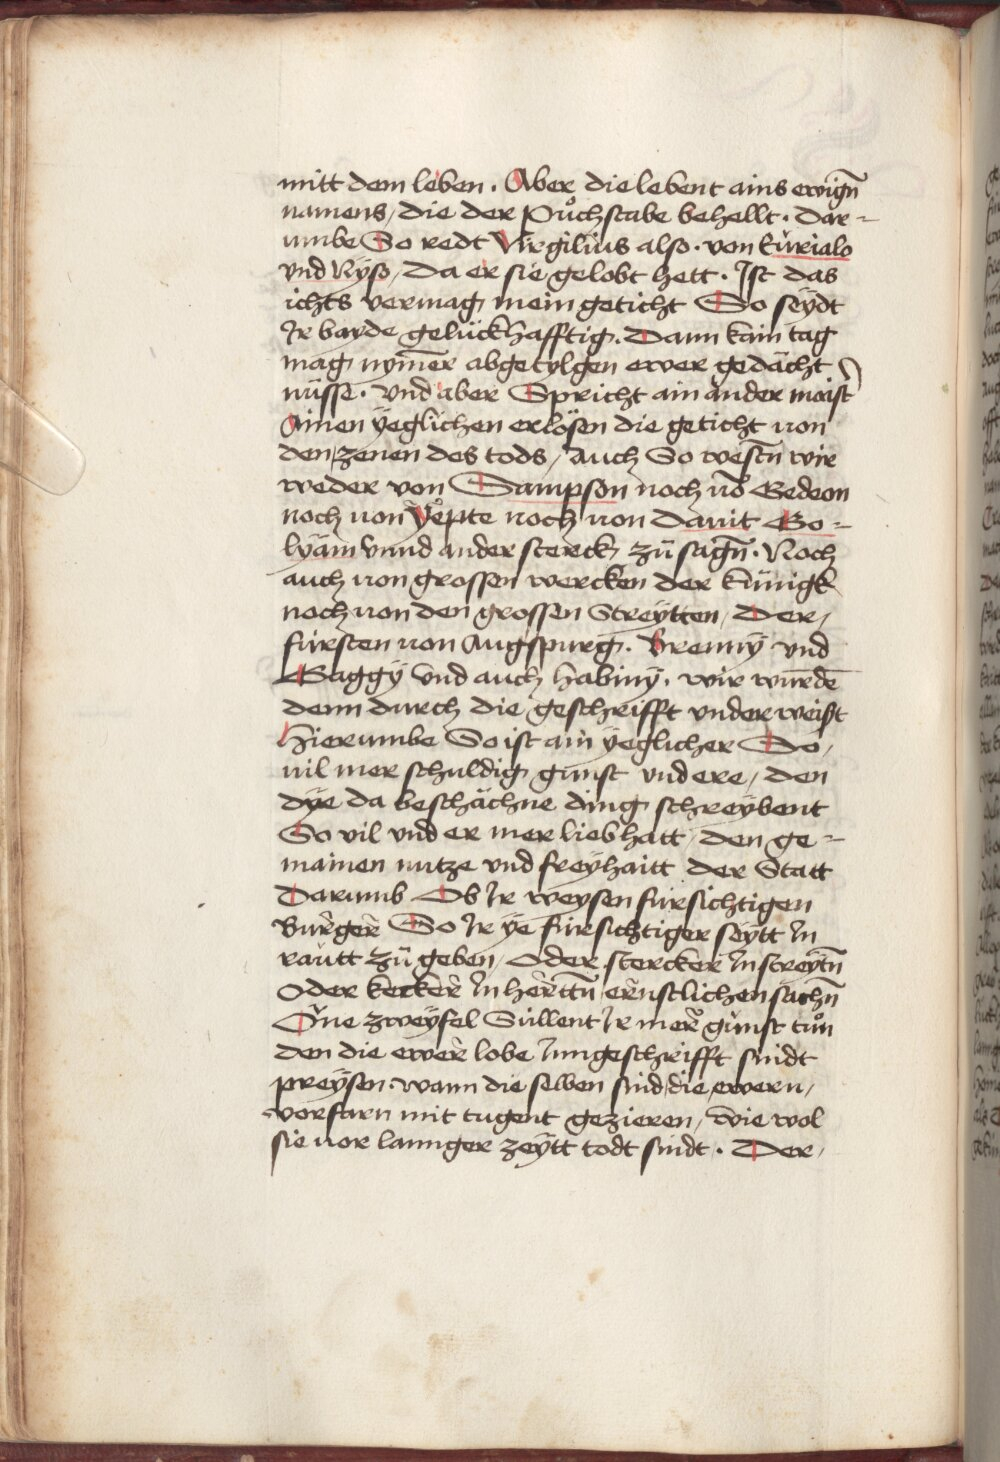 mitt dem leben . Aber die lebent ains ewign̄
namens / die der Půchstabe behellt . dar=
umbe So redt Virgilius also . von Eurialo
vnd Nyso / da er sie gelobt hett . Ist das
ichts vermag mein geticht So seÿdt
Ir bayde gelückhafftig . Dann kain tag
mag nym̄er abgetylgen ewer gedächt
nüsse . vnd aber Spricht ain ander maist
Ainen ÿeglichen erlösen die geticht von
den zenen des tods / auch So westn̄ wir
weder von Sampson noch vō Gedeon
noch von Yepte noch von dauit Go=
lyam Vnnd ander sterck zü sagn̄ . Noch
auch von grossen wercken der künigk
noch von den grossen Streÿtten / Der /
fürsten von Augspurg . Brenny vnd
Baggÿ Vnd auch habinÿ . wir würdē
denn durch die geschrifft vnderweist
Hierumbe So ist ain ÿeglicher So /
vil mer schuldig gunst vnd ere / den
dÿe da beschächne ding schreÿbent
So vil vnd er mer lieb hatt / den ge=
mainen nutze vnd freÿhaitt der Statt
Darumb Ob Ir weysen fürsichtigen
Burger So Ir ye fürsichtiger seÿtt In
rautt zü geben / oder stercker In streÿtn̄
Oder kecker In herttn̄ ernstlichen sachn̄
One zweÿfel Süllent Ir mer gunst tůn
den die ewer lobe Inn geschrifft sindt
preÿsen wann die selben sind die ewern /
vorfarn mit tugent gezieren / wie wol
sie vor lannger zeÿtt todt sindt . Der /